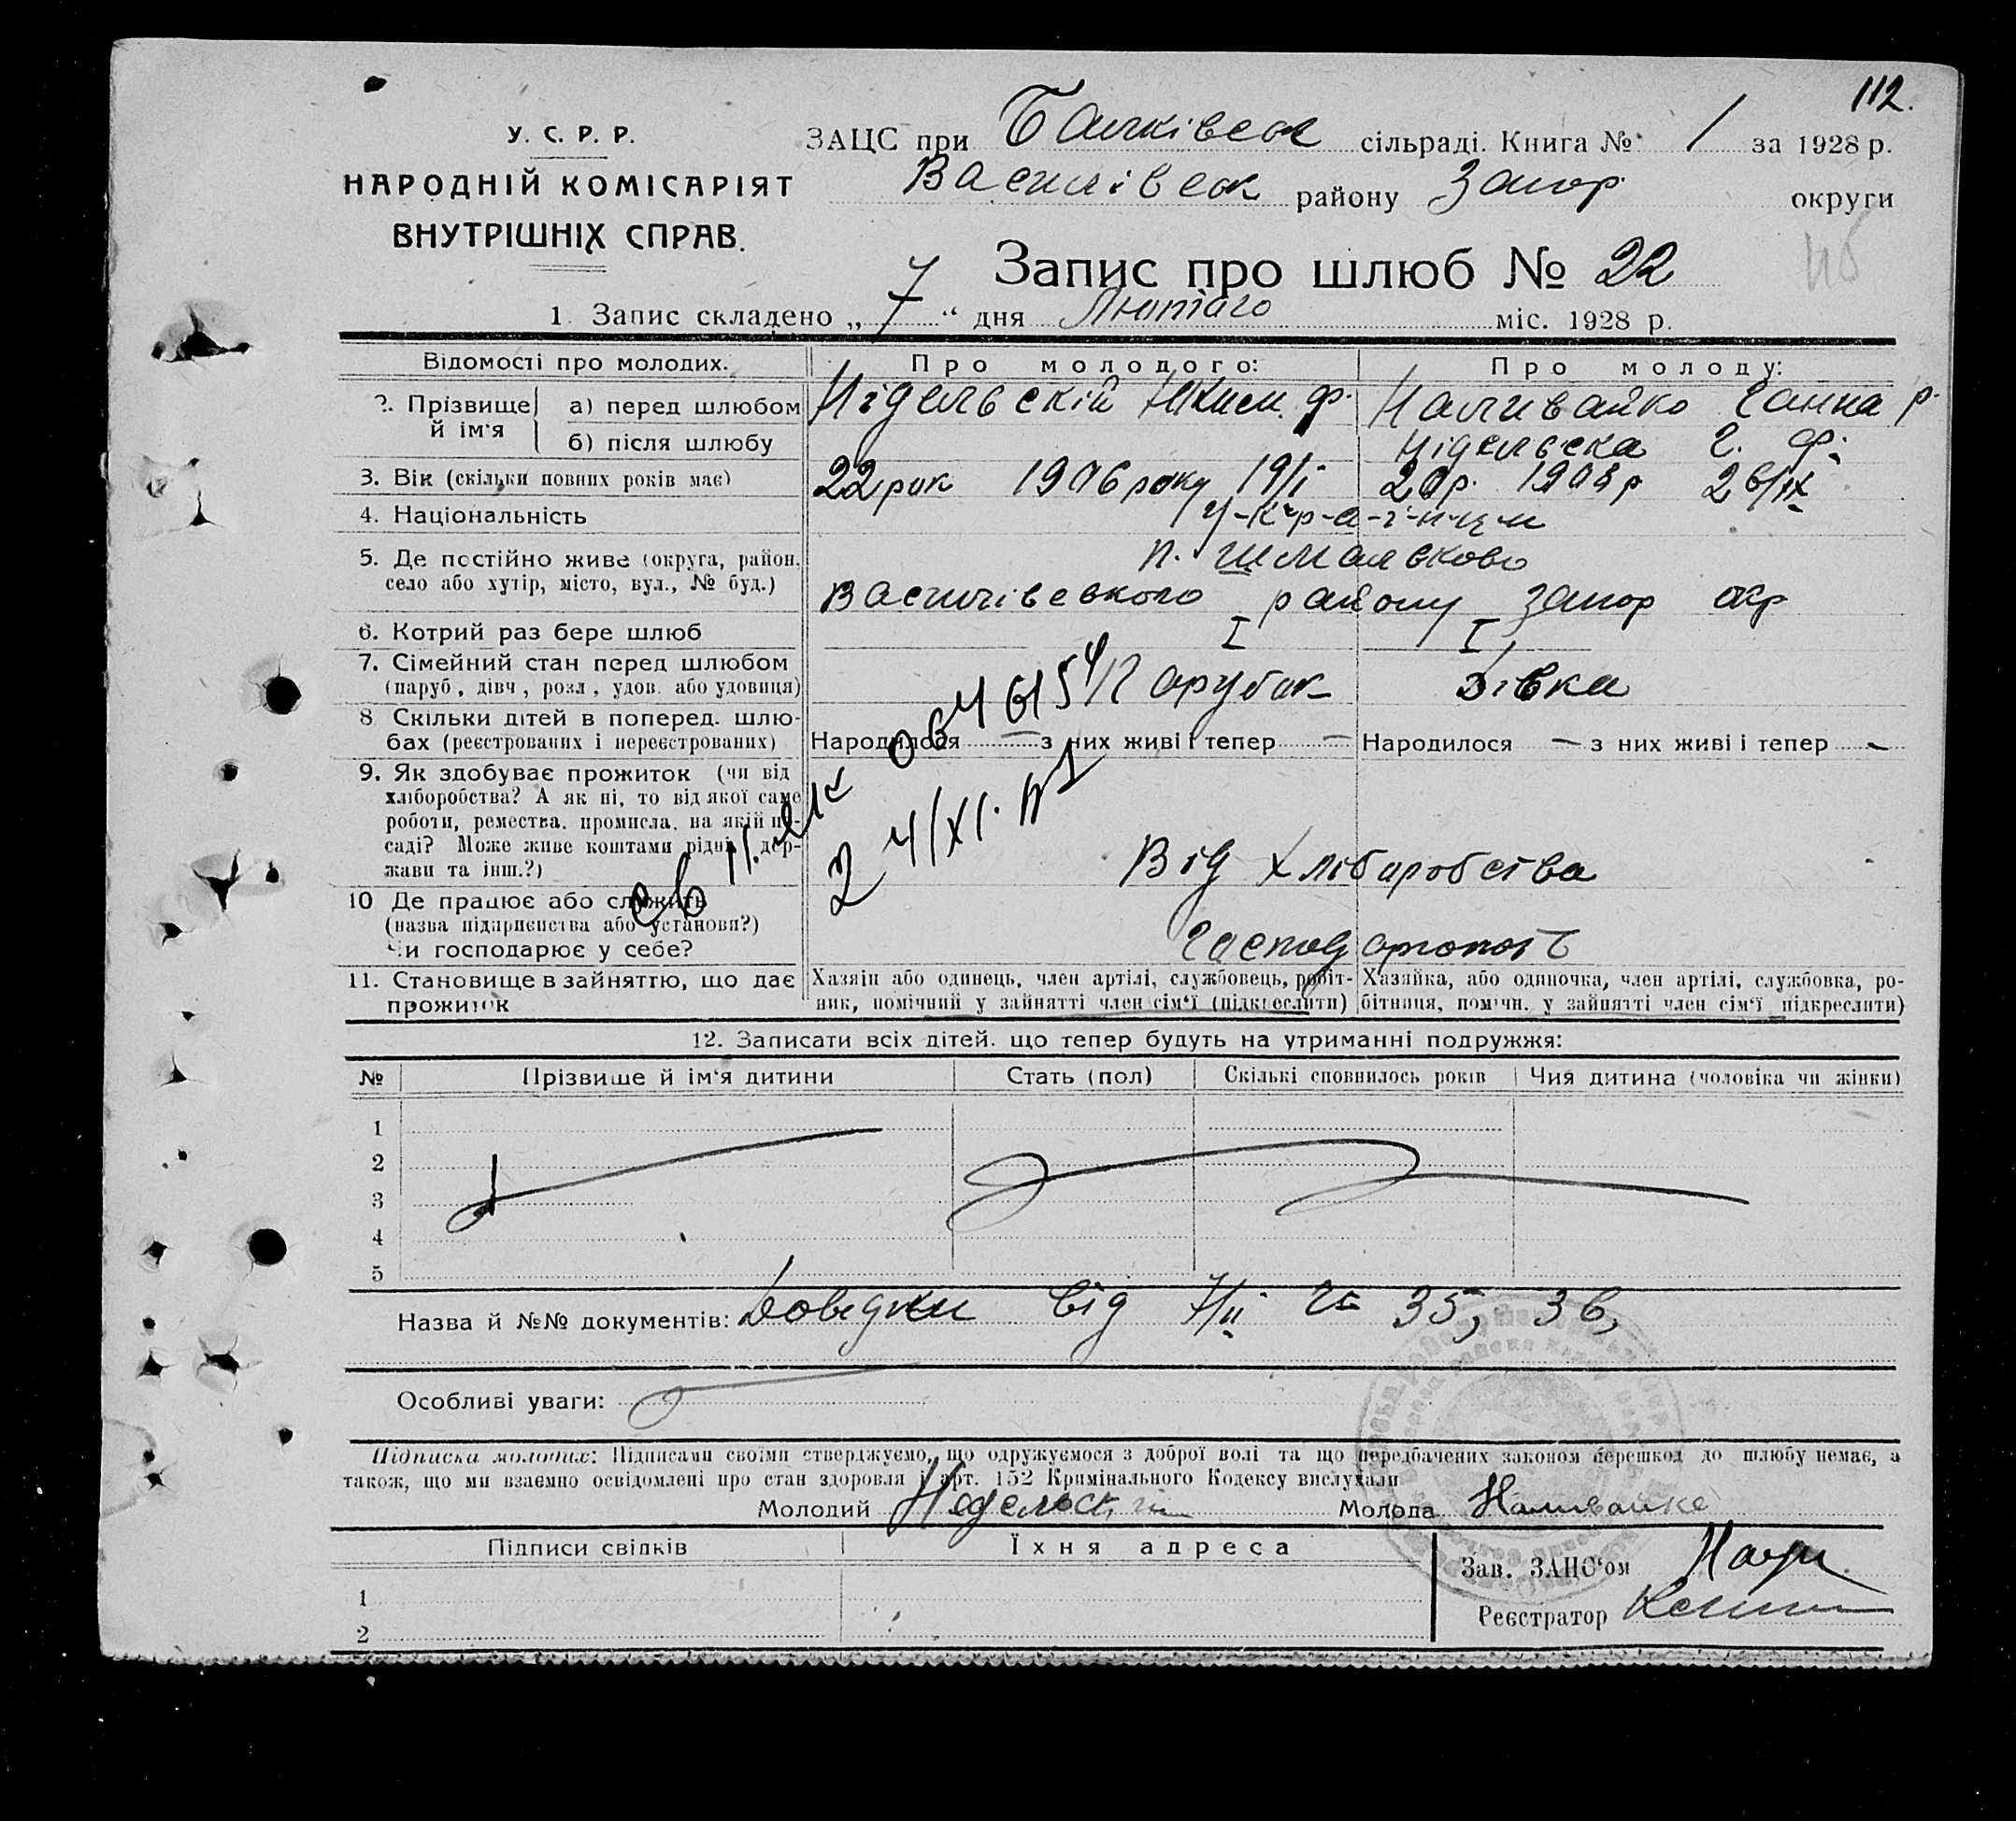 112.
У. С. Р. Р.
НАРОДНІЙ КОМІСАРІЯТ
ВНУТРІШНІХ СПРАВ.
ЗАЦС при Балківськ сільраді. Книга № 1 за 1928 р.
Василівськ району Запор. округи
Запис про шлюб № 22
1. Запис складено „7“ дня Лютаго міс. 1928 р.
Відомості про молодих. Про молодого: Про молоду:
2. Прізвище й ім‘я а) перед шлюбом Нідельскій Юхим. ф. Наливайко Ганна р.
б) після шлюбу Нідельска Г. Ф.
3. Вік (скільки повних років має) 22 рок 1906 року 19/I 20 р. 1908 р 26/IX
4. Національність У-к-р-а-ї-н-ц-и
5. Де постійно живе (округа, район, п. Шмальково
село або хутір, місто, вул., № буд.) Василівского району Запор окр
6. Котрий раз бере шлюб I I
7. Сімейний стан перед шлюбом Парубок Дівка
(паруб., дівч., розл., удов. або удовиця)
8. Скільки дітей в поперед. шлю-
бах (реєстрованих і нереєстрованих) Народилося — з них живі і тепер — Народилося — з них живі і тепер —
9. Як здобуває прожиток (чи від
хліборобства? А як ні, то від якої саме
роботи, ремества, промисла, на якій по-
саді? Може живе коштами рідні, дер-
жави та інш.?) Від хліборобства
10 Де працює або служить
(назва підприємства або установи?)
Чи господарює у себе? Господарюють
11. Становище в зайняттю, що дає
прожиток
Хазяїн або одинець, член артілі, службовець, робіт-
ник, помічний у зайнятті член сім‘ї (підкреслити)
Хазяйка, або одиночка, член артілі, службовка, ро-
бітниця, помічн. у зайнятті член сім‘ї підкреслити)
12. Записати всіх дітей, що тепер будуть на утриманні подружжя:
№ Прізвище й ім‘я дитини Стать (пол) Скількі сповнилось років Чия дитина (чоловіка чи жінки)
1
2
3
4
5
Назва й №№ документів: Довідки від 7/II № 35, 36,
Особливі уваги:
Підписка молодих: Підписами своїми стверджуємо, що одружуємося з доброї волі та що передбачених законом перешкод до шлюбу немає, а
також, що ми взаємно освідомлені про стан здоровля і арт. 152 Кримінального Кодексу вислухали
Молодий Недельскій Молода Наливайко
Підписи свідків Їхня адреса
1
2
Зав. ЗАЦС‘ом
Реєстратор